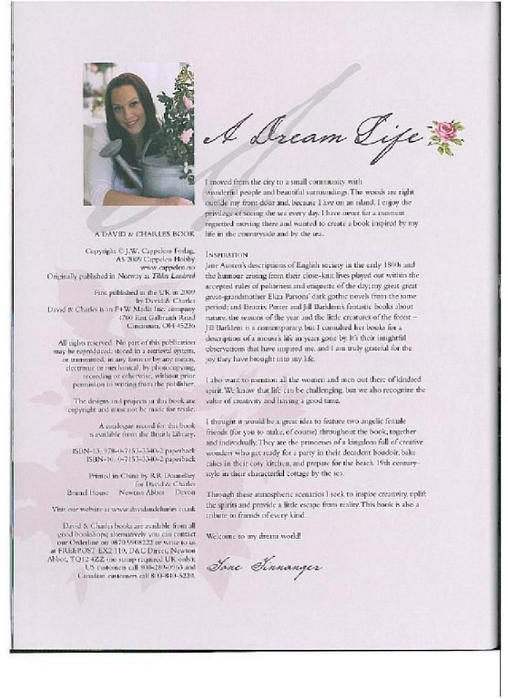 A Dream Life
I moved from the city to a small community with
wonderful people and beautiful surroundings. The woods are right
outside my front door and, because I live on an island, I enjoy the
privilege of seeing the sea every day. I have never for a moment
regretted moving there and wanted to create a book inspired by my
life in the countryside and by the sea.
INSPIRATION
Jane Austen's descriptions of English society in the early 1800s and
the humour arising from their close-knit lives played out within the
accepted rules of politeness and etiquette of the day; my great great
great-grandmother Eliza Parsons' dark gothic novels from the same
period; and Beatrix Potter and Jill Barklem's fantastic books about
nature, the seasons of the year and the little creatures of the forest –
Jill Barklem is a contemporary, but I consulted her books for a
description of a mouse's life in years gone by. It's their insightful
observations that have inspired me, and I am truly grateful for the
joy they have brought into my life.
I also want to mention all the women and men out there of kindred
spirit. We know that life can be challenging, but we also recognize the
value of creativity and having a good time.
I thought it would be a great idea to feature two angelic female
friends (for you to make, of course) throughout the book, together
and individually. They are the princesses of a kingdom full of creative
wonders who get ready for a party in their decadent boudoir, bake
cakes in their cosy kitchen, and prepare for the beach 19th century-
style in their characterful cottage by the sea.
Through these atmospheric scenarios I seek to inspire creativity, uplift
the spirits and provide a little escape from reality. This book is also a
tribute to friends of every kind.
Welcome to my dream world!
Tone Finnanger
A DAVID & CHARLES BOOK
Copyright © J.W. Cappelens Forlag,
AS 2009 Cappelen Hobby
www.cappelen.no
Originally published in Norway as
First published in the UK in 2009
by David & Charles
David & Charles is an F+W Media Inc. company
4700 East Galbraith Road
Cincinnati, OH 45236
All rights reserved. No part of this publication
may be reproduced, stored in a retrieval system,
or transmitted, in any form or by any means,
electronic or mechanical, by photocopying,
recording or otherwise, without prior
permission in writing from the publisher.
The designs and projects in this book are
copyright and must not be made for resale.
A catalogue record for this book
is available from the British Library.
ISBN-13: 978-0-7153-3340-2 paperback
ISBN-10: 0-7153-3340-2 paperback
Printed in China by R.R. Donnelley
for David & Charles
Brunel House Newton Abbot Devon
Visit our website at www.davidandcharles.co.uk
David & Charles books are available from all
good bookshops; alternatively you can contact
our Orderline on 0870 9908222 or write to us
at FREEPOST EX2 110, D&C Direct, Newton
Abbot, TQ12 4ZZ (no stamp required UK only);
US customers call 800-289-0963 and
Canadian customers call 800-840-5220.